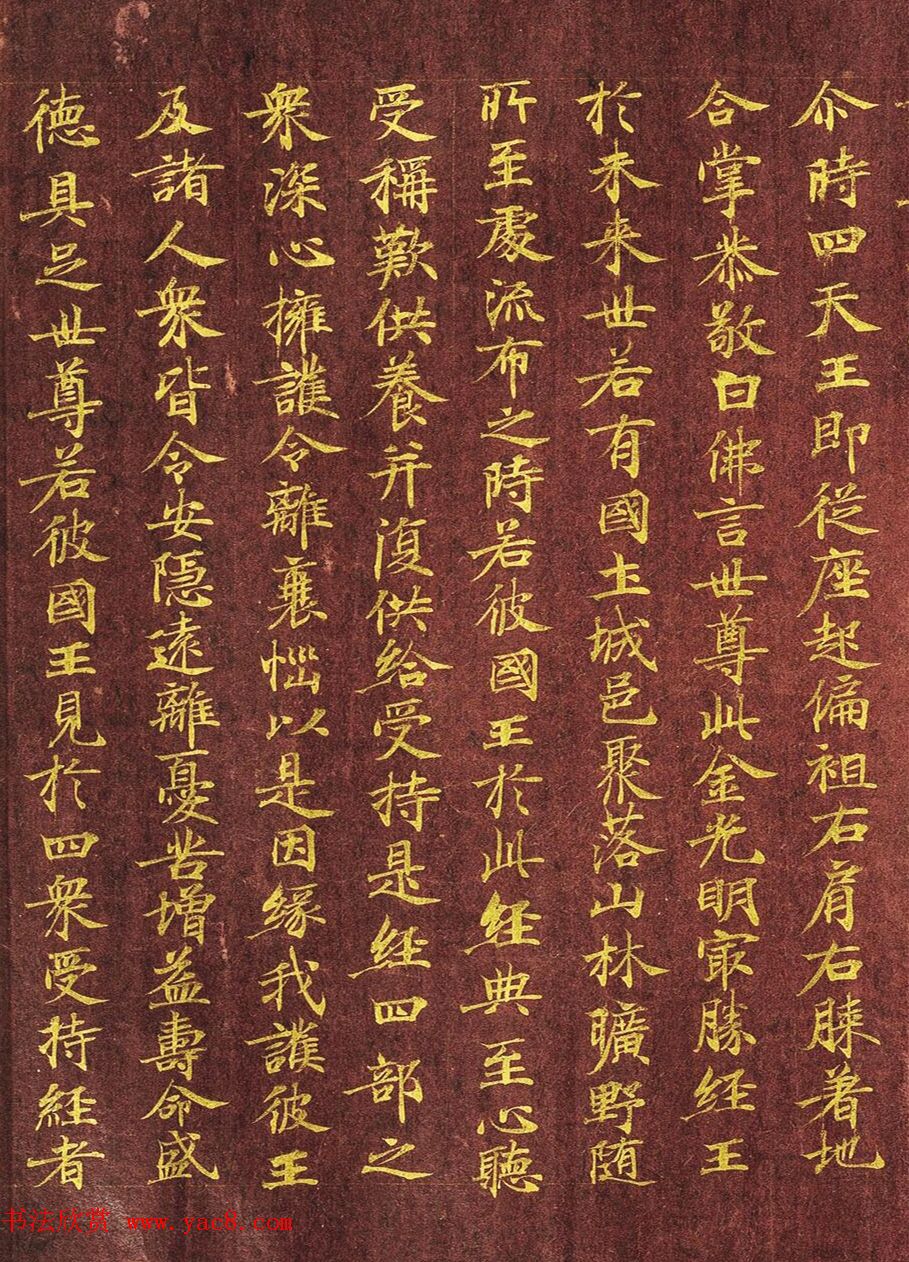 尒時四天王即從座起偏袒右肩右膝著地
合掌恭敬白佛言世尊此金光明㝡勝經王
於未来世若有國土城邑聚落山林曠野随
所至處流布之時若彼國王於此經典至心聽
受稱歎供養并復供給受持是經四部之
衆深心擁護令離衰惱以是因緣我護彼王
及諸人衆皆令安隱遠離憂苦增益壽命威
徳具足世尊若彼國王見於四衆受持經者
书法欣赏 www.yac8.com